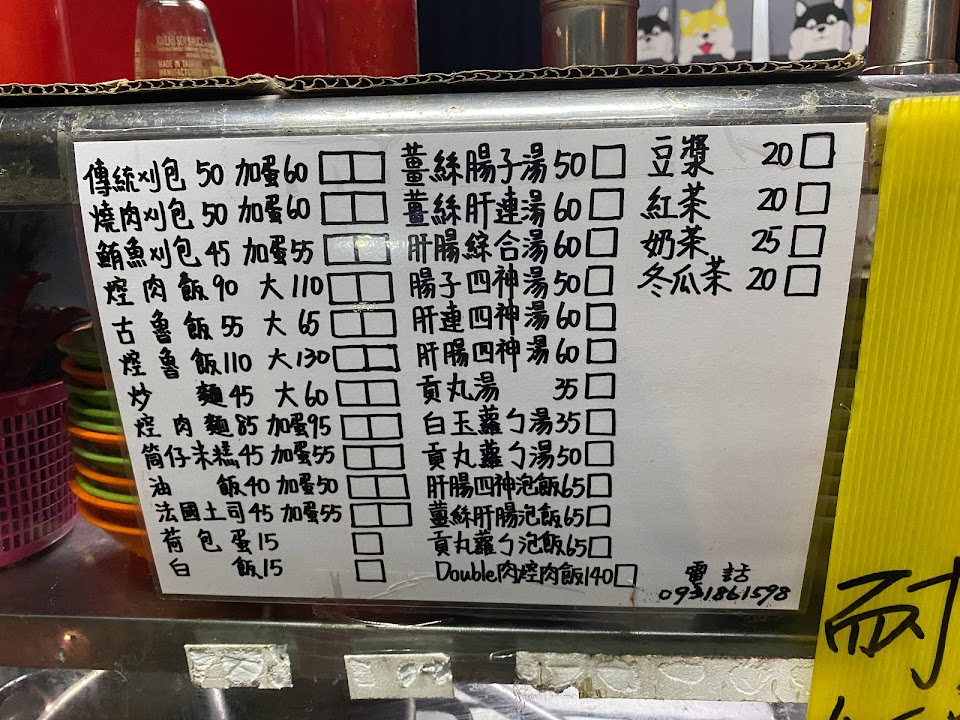 MADE IN TAIWAN
傳統刈包 50 加蛋60
燒肉刈包 50 加蛋60
鮪魚刈包 45 加蛋55
焢肉飯90 大110
古魯飯55 大65
焢魯飯110 大130
炒麵45 大60
焢肉麵85 加蛋95
筒仔米糕45 加蛋55
油飯40 加蛋50
法國土司45 加蛋55
荷包蛋15
白飯15
薑絲腸子湯50
薑絲肝連湯60
肝腸綜合湯60
腸子四神湯50
肝連四神湯60
肝腸四神湯60
貢丸湯 35
白玉蘿勺湯35
貢丸蘿勺湯50
肝腸四神泡飯65
薑絲肝腸泡飯65
貢丸蘿勺泡飯65
Double肉焢肉飯140
豆漿 20
紅茶 20
奶茶 25
冬瓜茶 20
電話
0931861598
耐